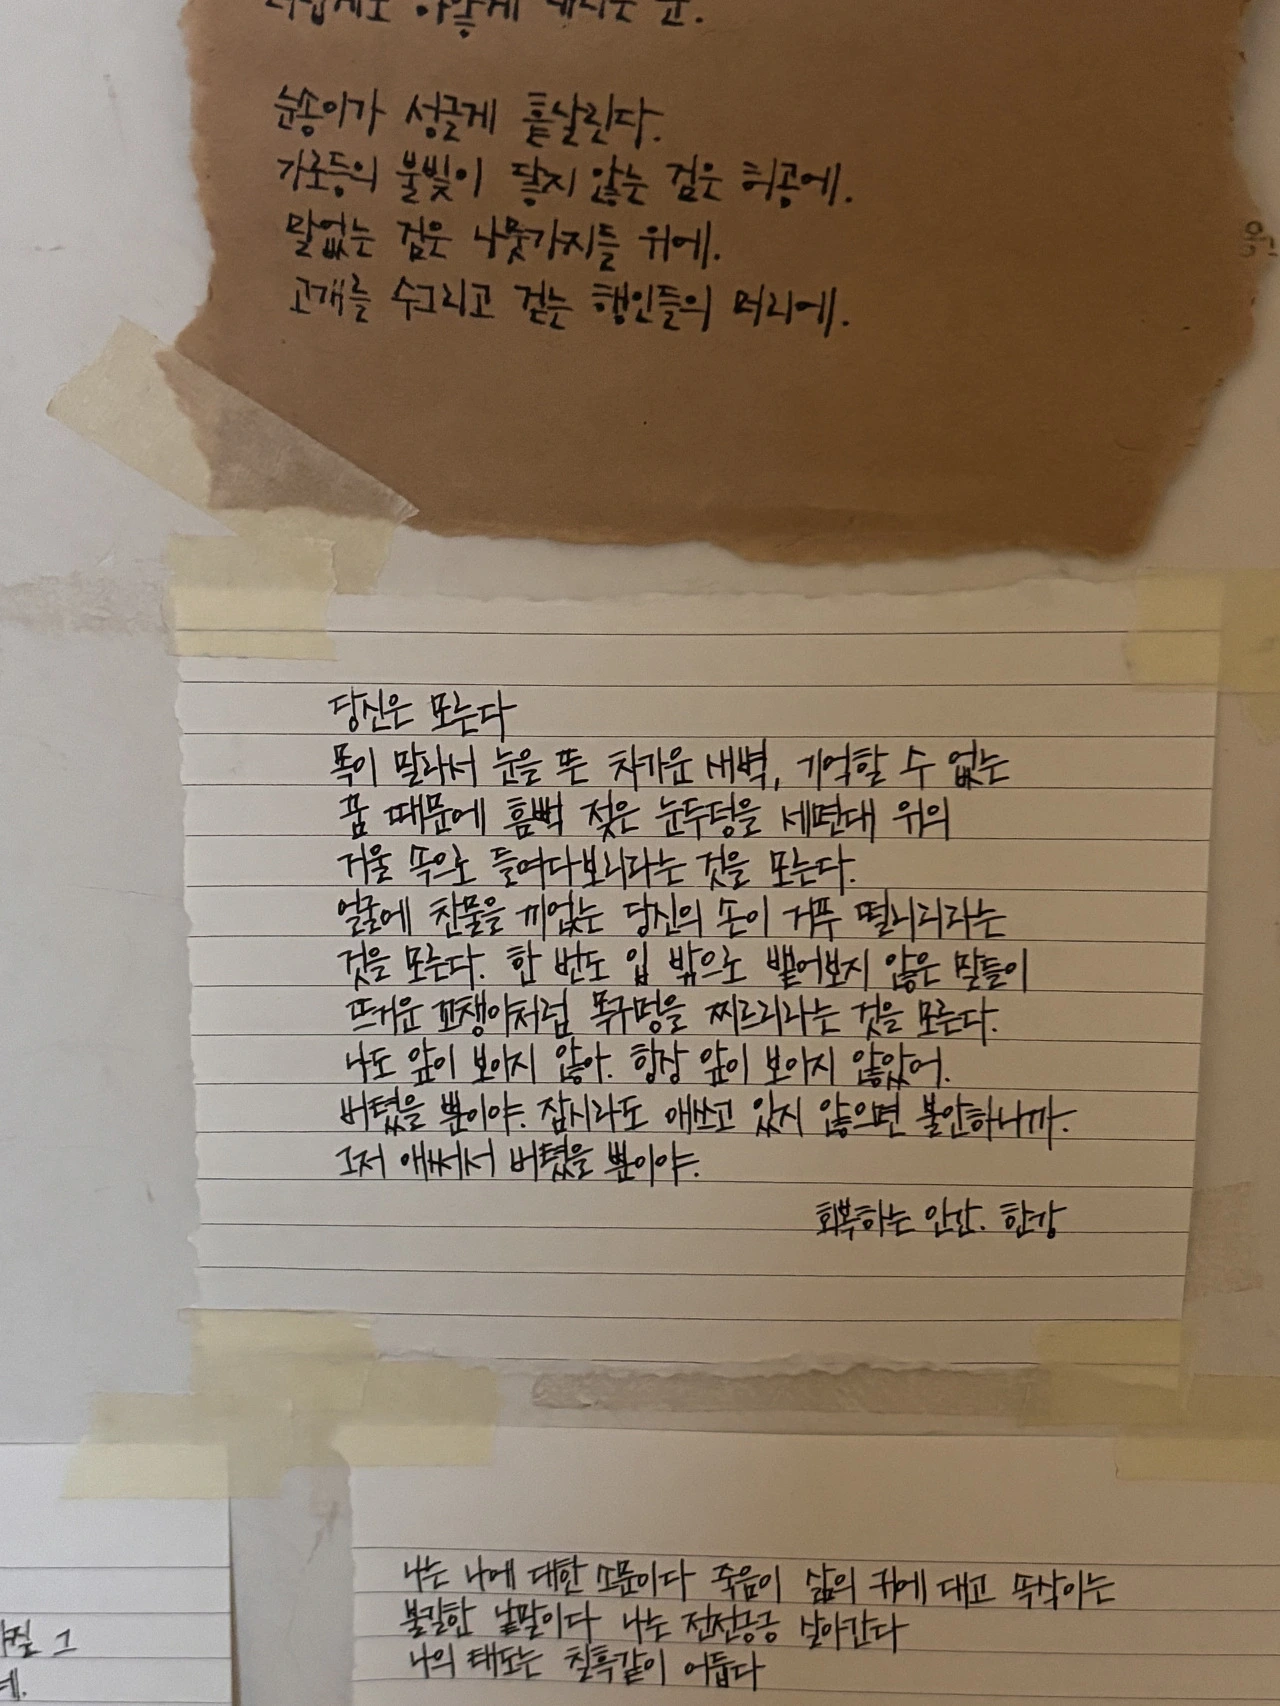 하얗게 내리는 눈.
눈송이가 성글게 흩날린다.
가로등의 불빛이 닿지 않는 검은 허공에.
말없는 검은 나뭇가지들 위에.
고개를 수그리고 걷는 행인들의 머리에.
당신은 모른다
목이 말라서 눈을 뜬 차가운 새벽, 기억할 수 없는
꿈 때문에 흠뻑 젖은 눈두덩을 세면대 위의
거울 속으로 들여다보리라는 것을 모른다.
얼굴에 찬물을 끼얹는 당신의 손이 거푸 떨리리라는
것을 모른다. 한 번도 입 밖으로 뱉어보지 않은 말들이
뜨거운 꼬챙이처럼 목구멍을 찌르리라는 것을 모른다.
나도 앞이 보이지 않아. 항상 앞이 보이지 않았어.
버텼을 뿐이야. 잠시라도 애쓰고 있지 않으면 불안하니까.
그저 애써서 버텼을 뿐이야.
회복하는 인간. 한강
나는 나에 대한 소문이다 죽음이 삶의 귀에 대고 속삭이는
불길한 낱말이다 나는 전전긍긍 살아간다
나의 태도는 칠흑같이 어둡다
그
데.